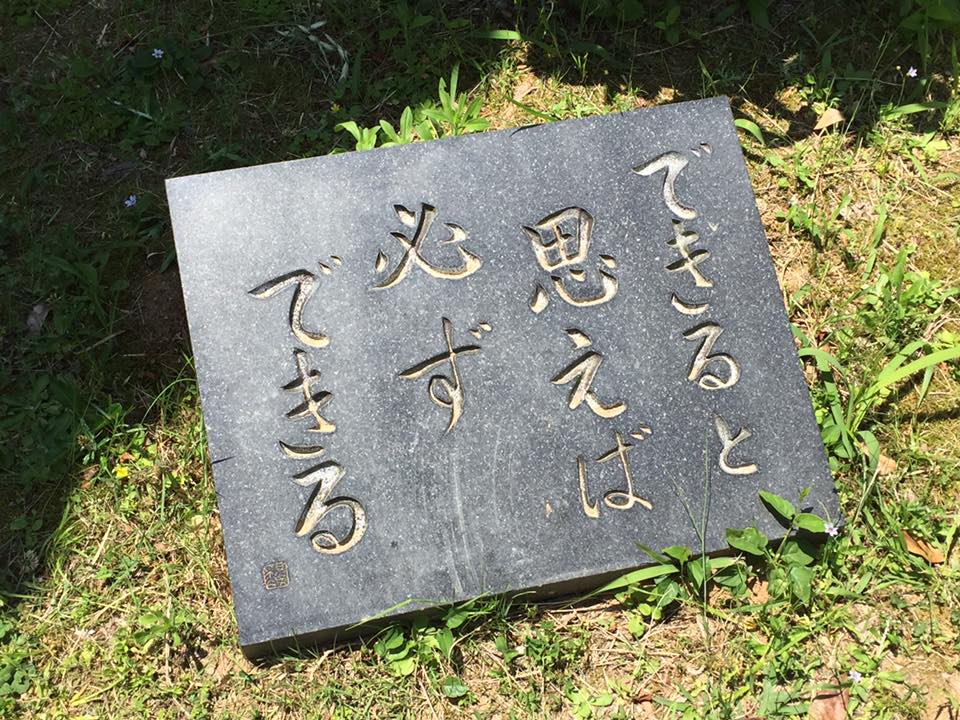 できると
思えば
必ず
できる